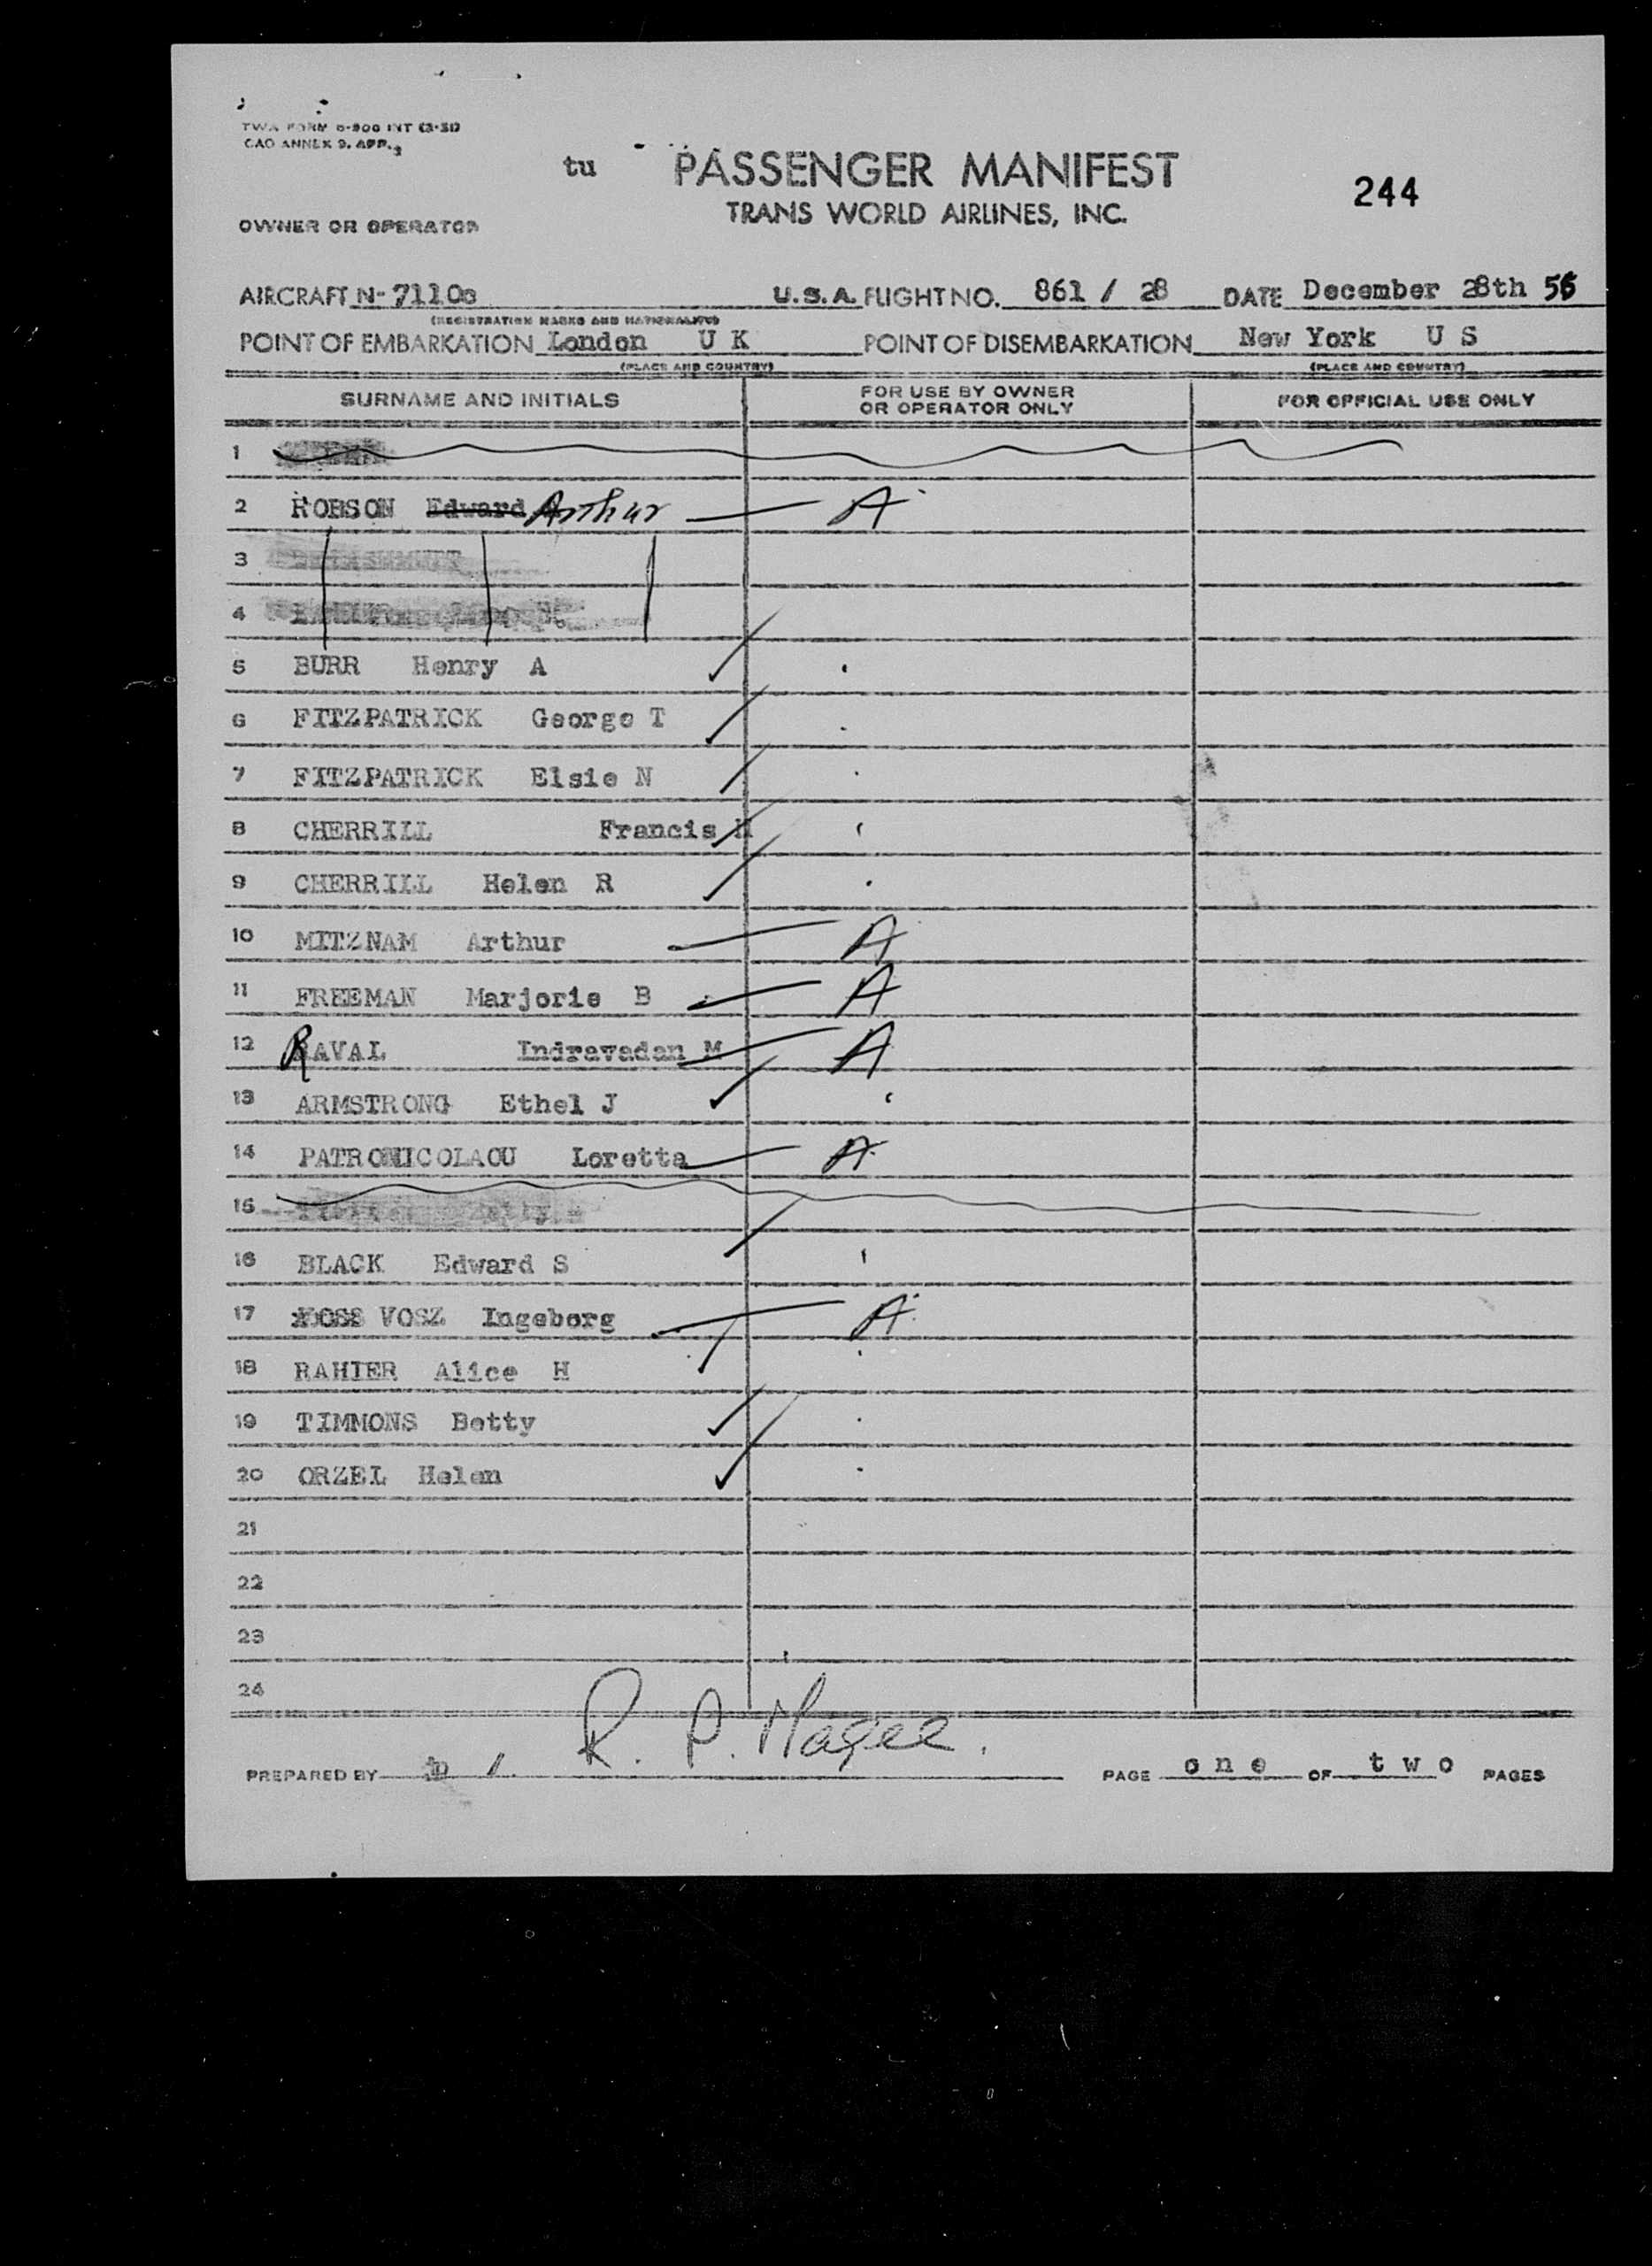 TWA FORM 0-900 INT (3-51)
CAO ANNEX 9. APP. 3
tu PASSENGER MANIFEST 244
TRANS WORLD AIRLINES, INC.
OWNER OR OPERATOR
AIRCRAFT N- U.S.A. FLIGHT NO. 861 / 28 DATE December 28th
(REGISTRATION MARKS AND NATIONALITY)
POINT OF EMBARKATION London U K POINT OF DISEMBARKATION New York U S
(PLACE AND COUNTRY) (PLACE AND COUNTRY)
SURNAME AND INITIALS FOR USE BY OWNER OR OPERATOR ONLY FOR OFFICIAL USE ONLY
1
2 ROBSON Edward Arthur A
3
4
5 BURR Henry A
6 FITZPATRICK George T
7 FITZPATRICK Elsie N
8 CHERRILL Francis
9 CHERRILL Helen R
10 MITZNAM Arthur A
11 FREEMAN Marjorie B A
12 RAVAL Indravadan M A
13 ARMSTRONG Ethel J
14 PATRONICOLAOU Loretta A
15
16 BLACK Edward S
17 VOSZ Ingeborg A
18 RAHIER Alice H
19 TIMMONS Betty
20 ORZEL Helen
21
22
23
24
PREPARED BY R. P. Magee. PAGE one OF two PAGES